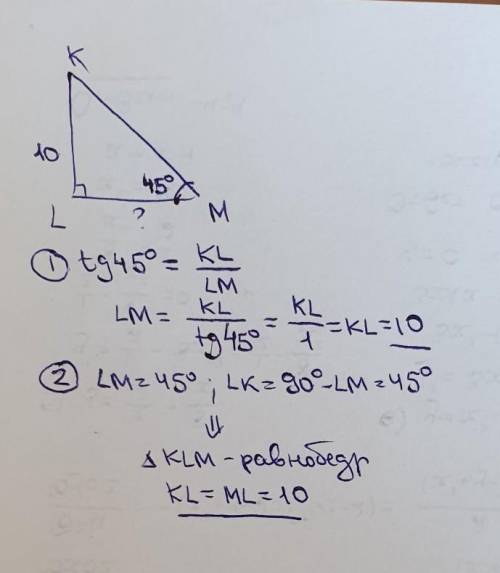 K
10
45°
L
?
M
① tg45° = KL/LM
LM = KL/tg45° = KL/1 = KL = 10
② ∠M = 45° ; ∠K = 90° - ∠M = 45°
⇓
△ KLM - равнобедр
KL = ML = 10